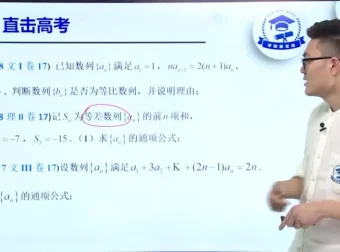 直击高考
8文I卷17) 已知数列{aₙ}满足a₁=1, naₙ₊₁=2(n+1)aₙ,
. 判断数列{bₙ}是否为等比数列, 并说明理由;
8理II卷17)记Sₙ为等差数列{aₙ}的前n项和,
=-7, S₃=-15. (1)求{aₙ}的通项公式;
7文III卷17)设数列{aₙ}满足a₁+3a₂+K+(2n-1)aₙ=2n.
{aₙ}的通项公式;